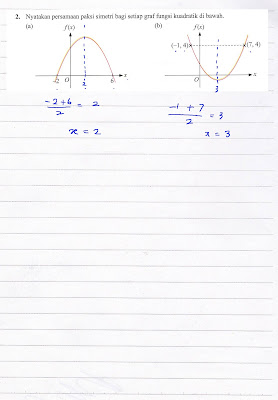 2. Nyatakan persamaan paksi simetri bagi setiap graf fungsi kuadratik di bawah.
(a) (b)
f(x) f(x)
(−1, 4) (7, 4)
-2 O 2 6 x
O 3 x
-2+6/2 = 2
x = 2
-1 + 7/2 = 3
x = 3